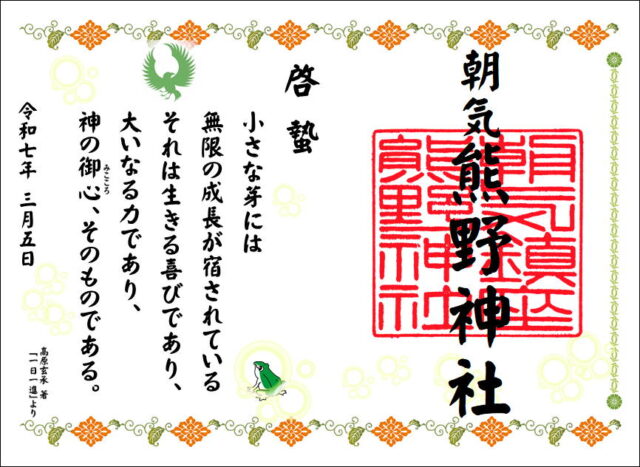 朝気熊野神社
啓蟄
小さな芽には
無限の成長が宿されている
それは生きる喜びであり、
大いなる力であり、
神の御心、そのものである。
みこころ
令和七年 三月五日
高原玄承 著
「一日一進」より